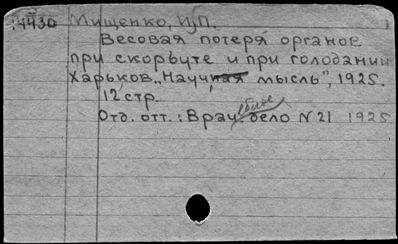 4430 Мищенко, И.П.
Весовая потеря органов
при скорбуте и при голодании
Харьков, „Научная мысль", 1925.
12 стр.
Отд. отт.: Врач. дело N 21 1925